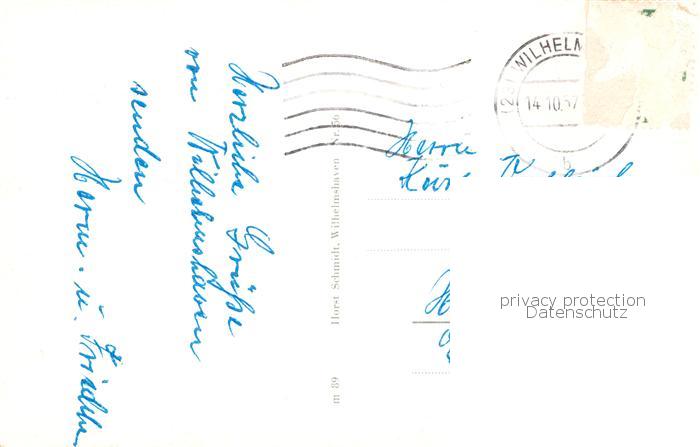 Herzliche Grüße
von Wilhelmshaven
senden
Herm. u. Friedchen
m 89 Horst Schmidt, Wilhelmshaven Nr. 56
(23) WILHELM
14.10.57
b
Herrn
privacy protection
Datenschutz